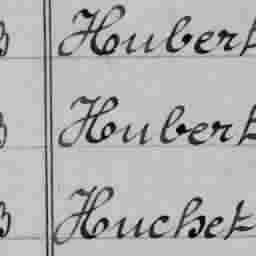 Hubert
Hubert
Huchet